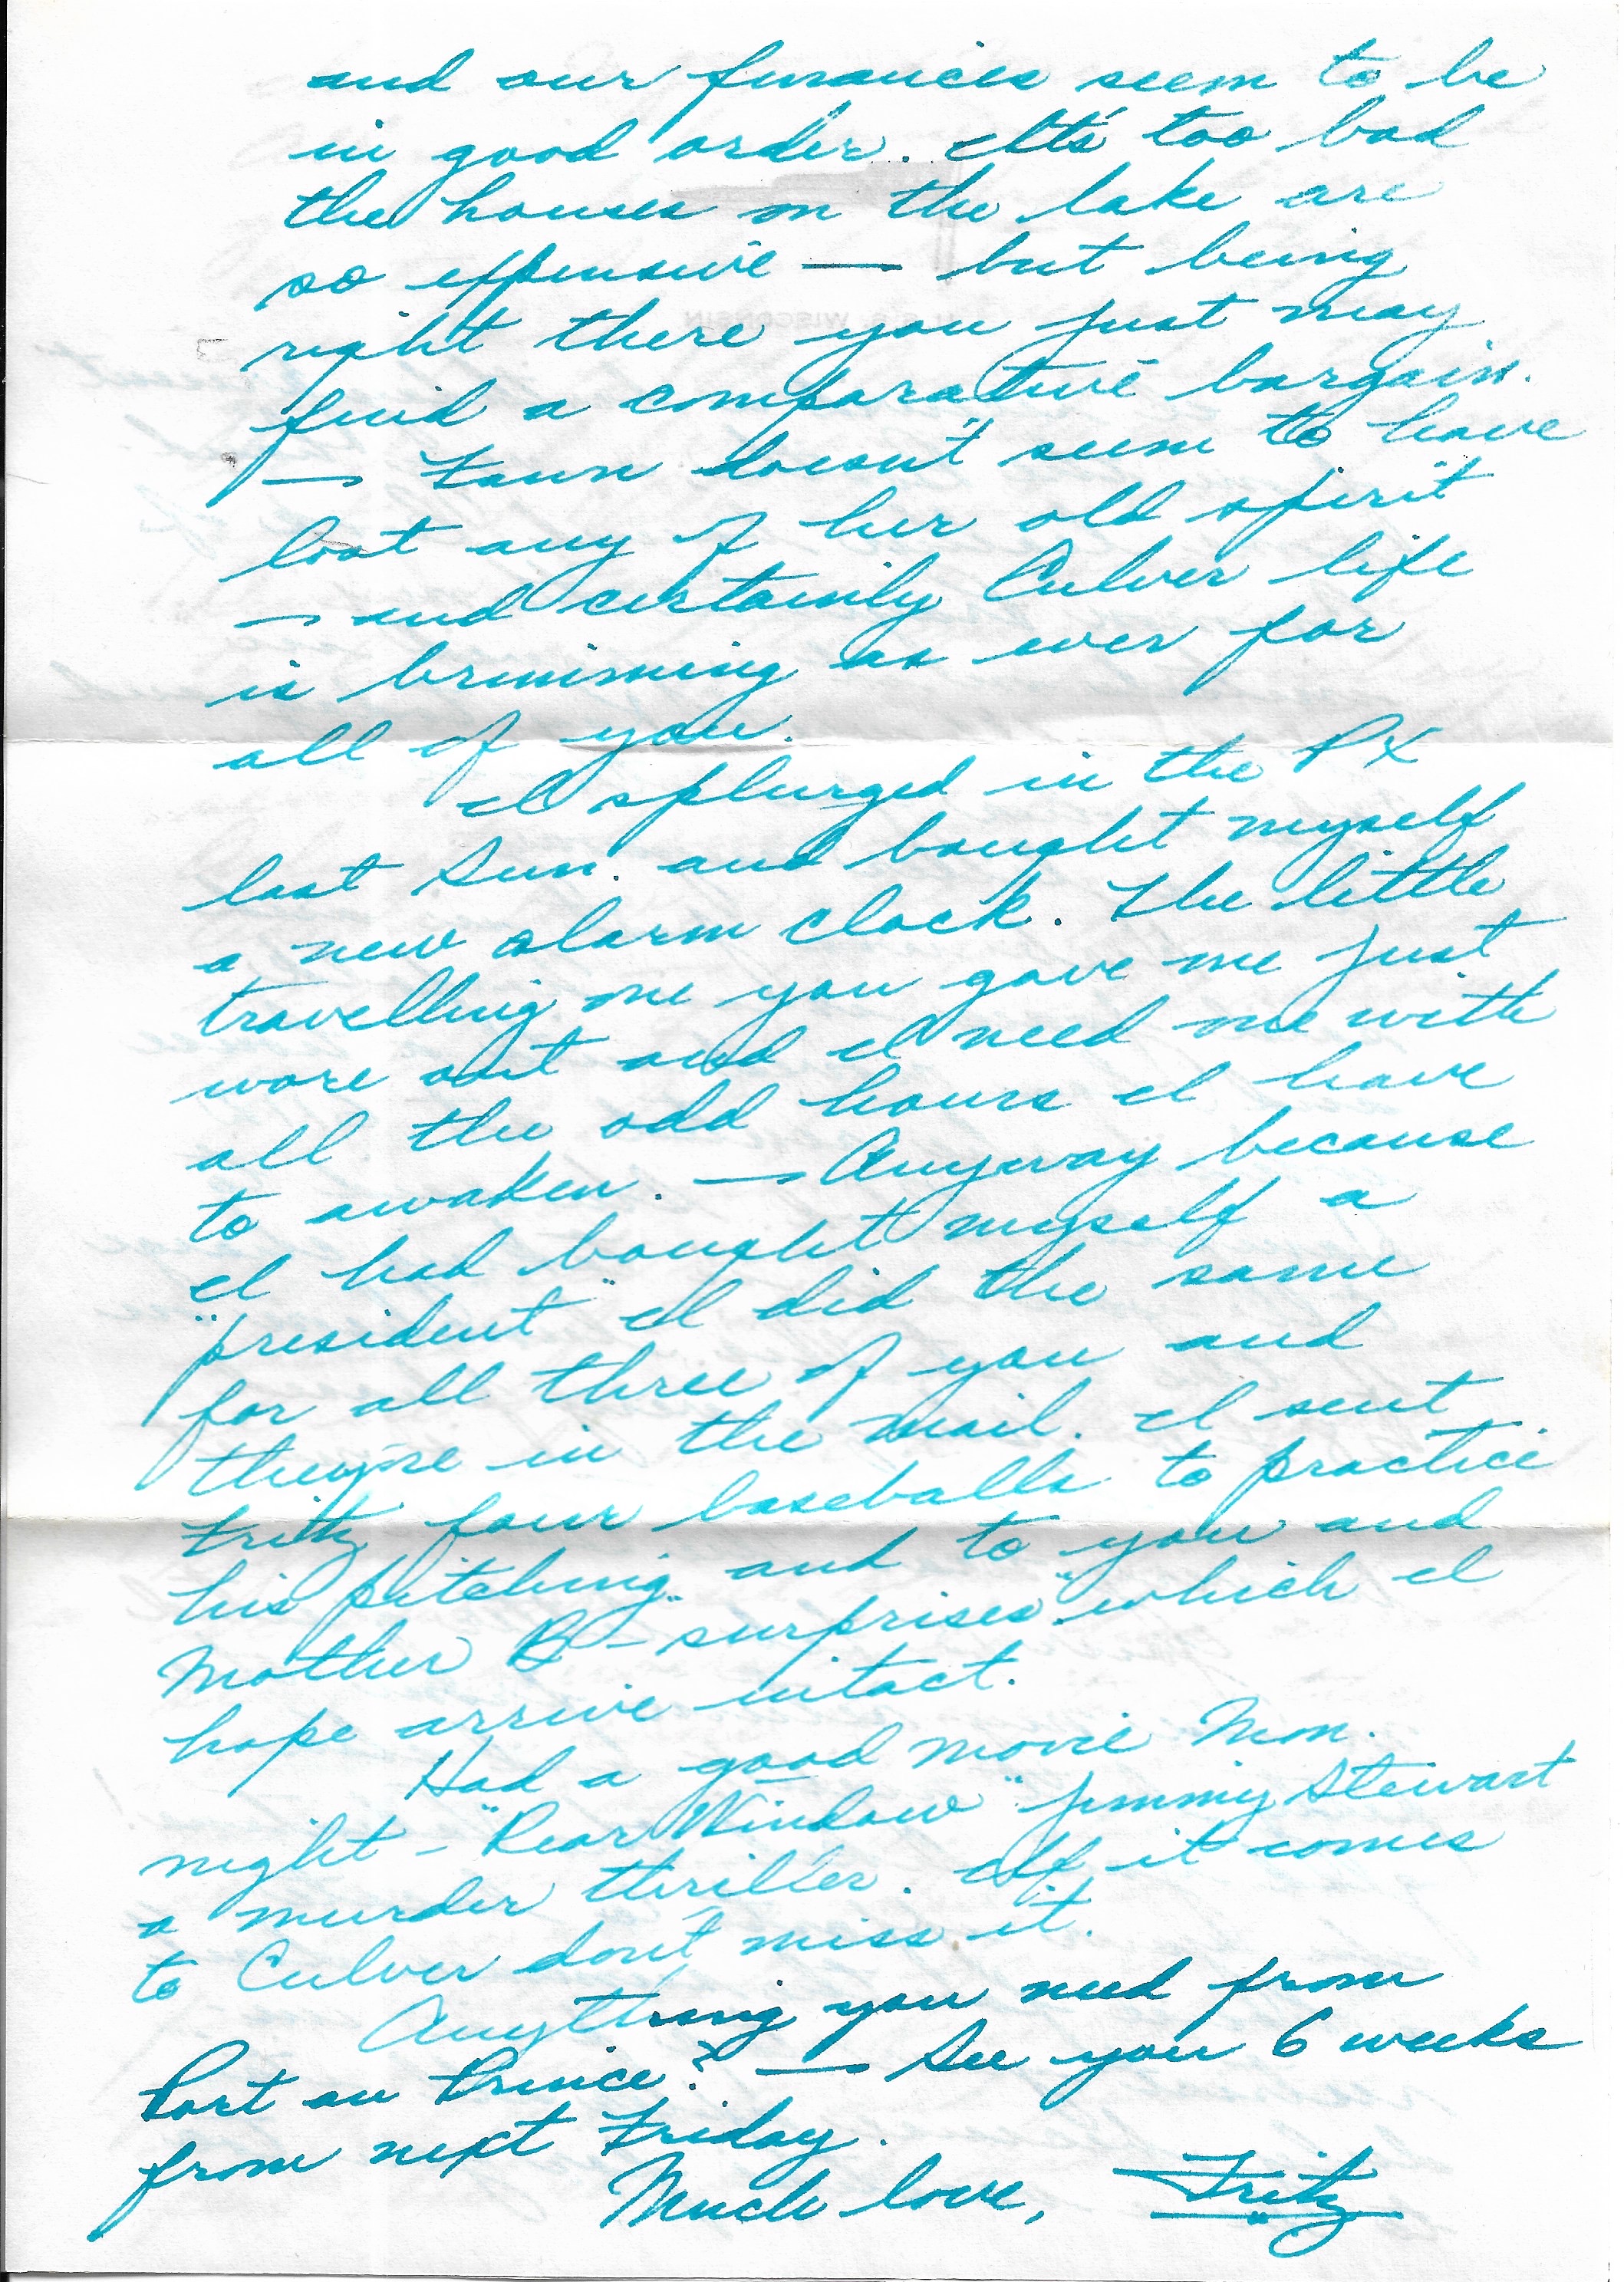 and our finances seem to be
in good order. It's too bad
the houses on the lake are
so expensive — but being
right there you just may
find a comparative bargain.
— Faun doesn't seem to have
lost any of her old spirit
— and certainly Culver life
is brimming as ever for
all of you.
I splurged in the PX
last Sun. and bought myself
a new alarm clock. The little
travelling one you gave me just
wore out and I need one with
all the odd hours I have
to awaken. — Anyway because
I had bought myself a
"president" I did the same
for all three of you and
they're in the mail. I sent
Fritz four baseballs to practice
his pitching and to you and
Mother B - "surprises" which I
hope arrive intact.
Had a good movie Mon.
night - "Rear Window" Jimmy Stewart
a murder thriller. If it comes
to Culver don't miss it.
Anything you need from
Port au Prince? — See you 6 weeks
from next Friday.
Much love, Fritz